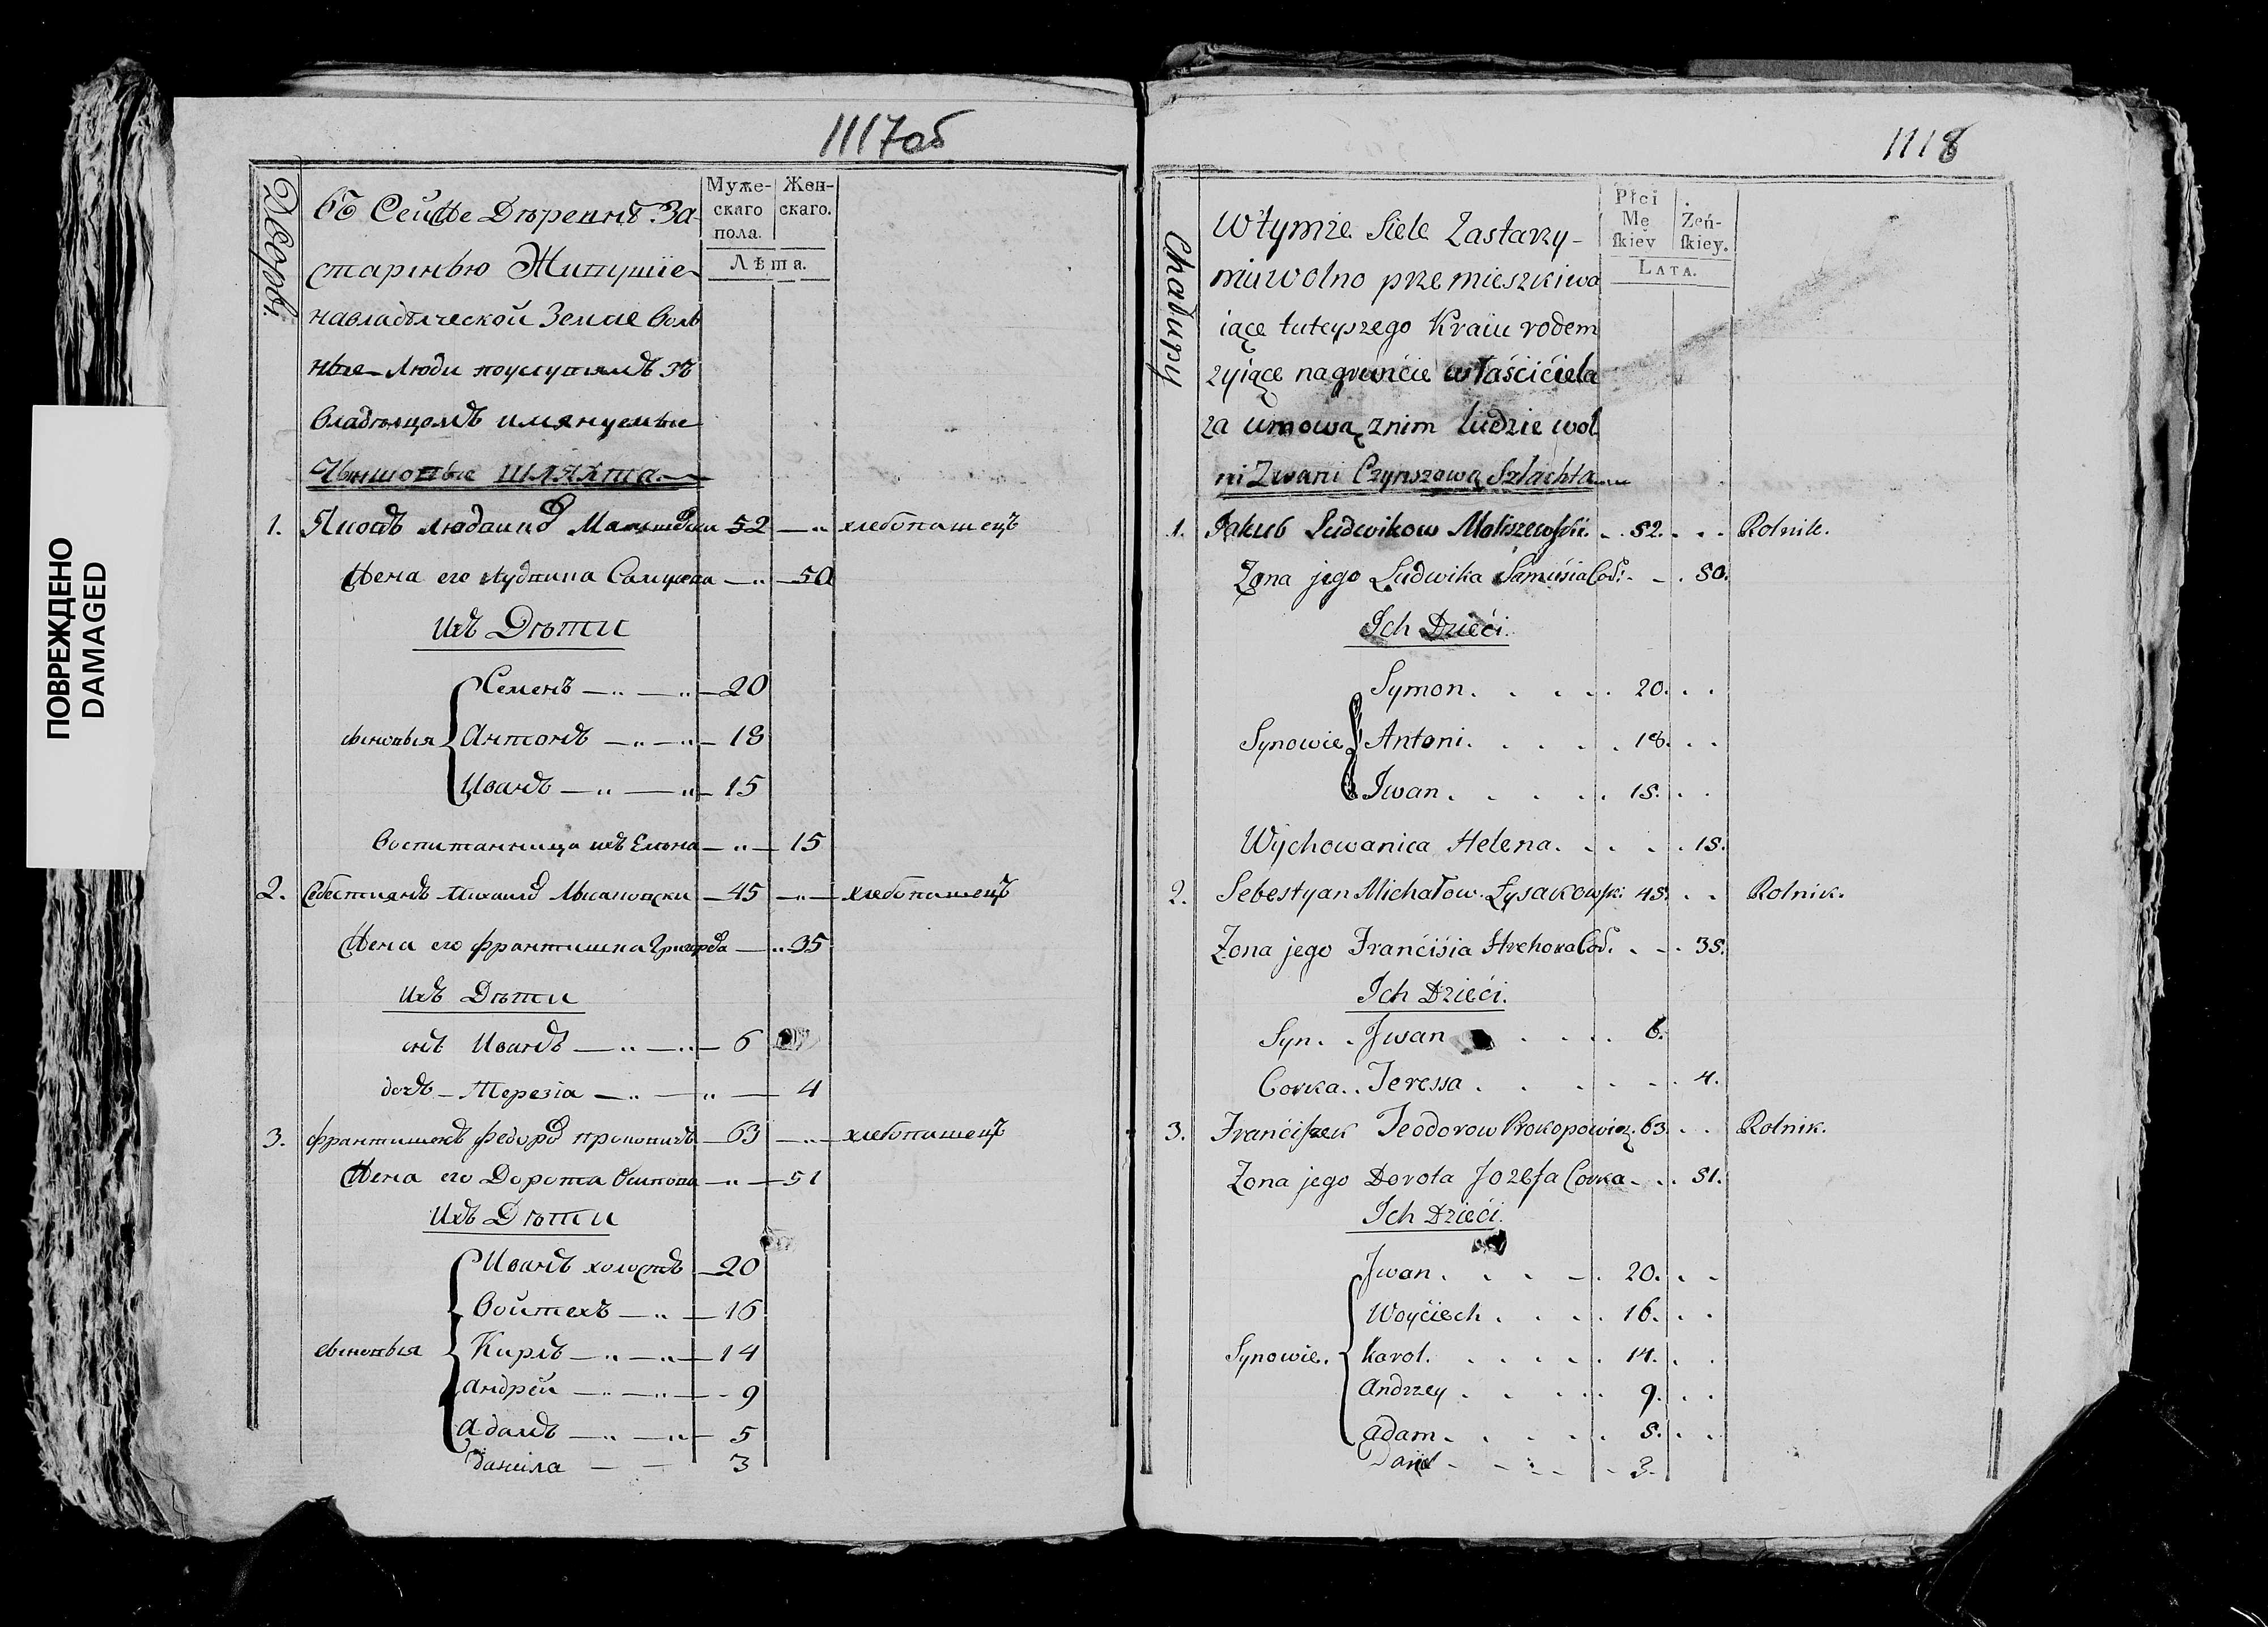 ПОВРЕЖДЕНО
DAMAGED
1117об
Дворы.
Муже-
скаго
пола.
Жен-
скаго.
Лѣта.
въ Сейже Дѣревнѣ За
старинью Живущие
навладѣлческой Земле Воль
ные Люди поуслугиямъ зъ
владѣлцомъ имянуемые
Чыншовые шляхта
1. Яковъ людвиковъ Малишевски 52 — хлебопашецъ
Жена его Лудвика Самуиова — 50
Ихъ Дѣти
Семенъ — 20
сыновья Антонъ — 18
Иванъ — 15
Воспитанница ихъ Елена — 15
2. Себестиянъ Михаилов Лысаковски — 45 — хлебопашецъ
Жена его франтишка Григорева — 35
Ихъ Дѣти
снъ Иванъ — 6
дочъ — Терезіа — 4
3. франтишекъ федоров прокопичъ — 63 — хлебопашецъ
Жена его Дорота Осипова — 51
Ихъ Дѣти
Иванъ холостъ — 20
Войтехъ — 16
сыновья Кирлъ — 14
Андрей — 9
Адамъ — 5
данила — 3
1118
Chałupy
Płci
Mę
ſkiey
Żeń-
ſkiey.
Lata.
W tymże Siele Zastarzy-
niu wolno przemieszkiwa
iące tuteyszego Kraiu rodem
zyiące na gruncie właściciela
za umową z nim ludzie wol
ni Zwani Czynszową Szlachta
1. Jakub Ludwikow Maliszewski. 52. Rolnik.
Zona jego Ludwika Samusia Cod: 50.
Ich Dzieci.
Symon. 20.
Synowie Antoni. 18.
Iwan. 15.
Wychowanica Helena. 15.
2. Sebestyan Michałow. Łysakowski 45. Rolnik.
Zona jego Franciśia Hrehora Cod. 35.
Ich Dzieci.
Syn. Jwan 6.
Corka. Teressa. 4.
3. Franciszek Teodorow Prokopowicz. 63. Rolnik.
Zona jego Dorota Jozefa Corka. 51.
Ich Dzieci.
Jwan. 20.
Woyciech. 16.
Synowie. Karol. 14.
Andrzey. 9.
Adam. 5.
Daniel 3.